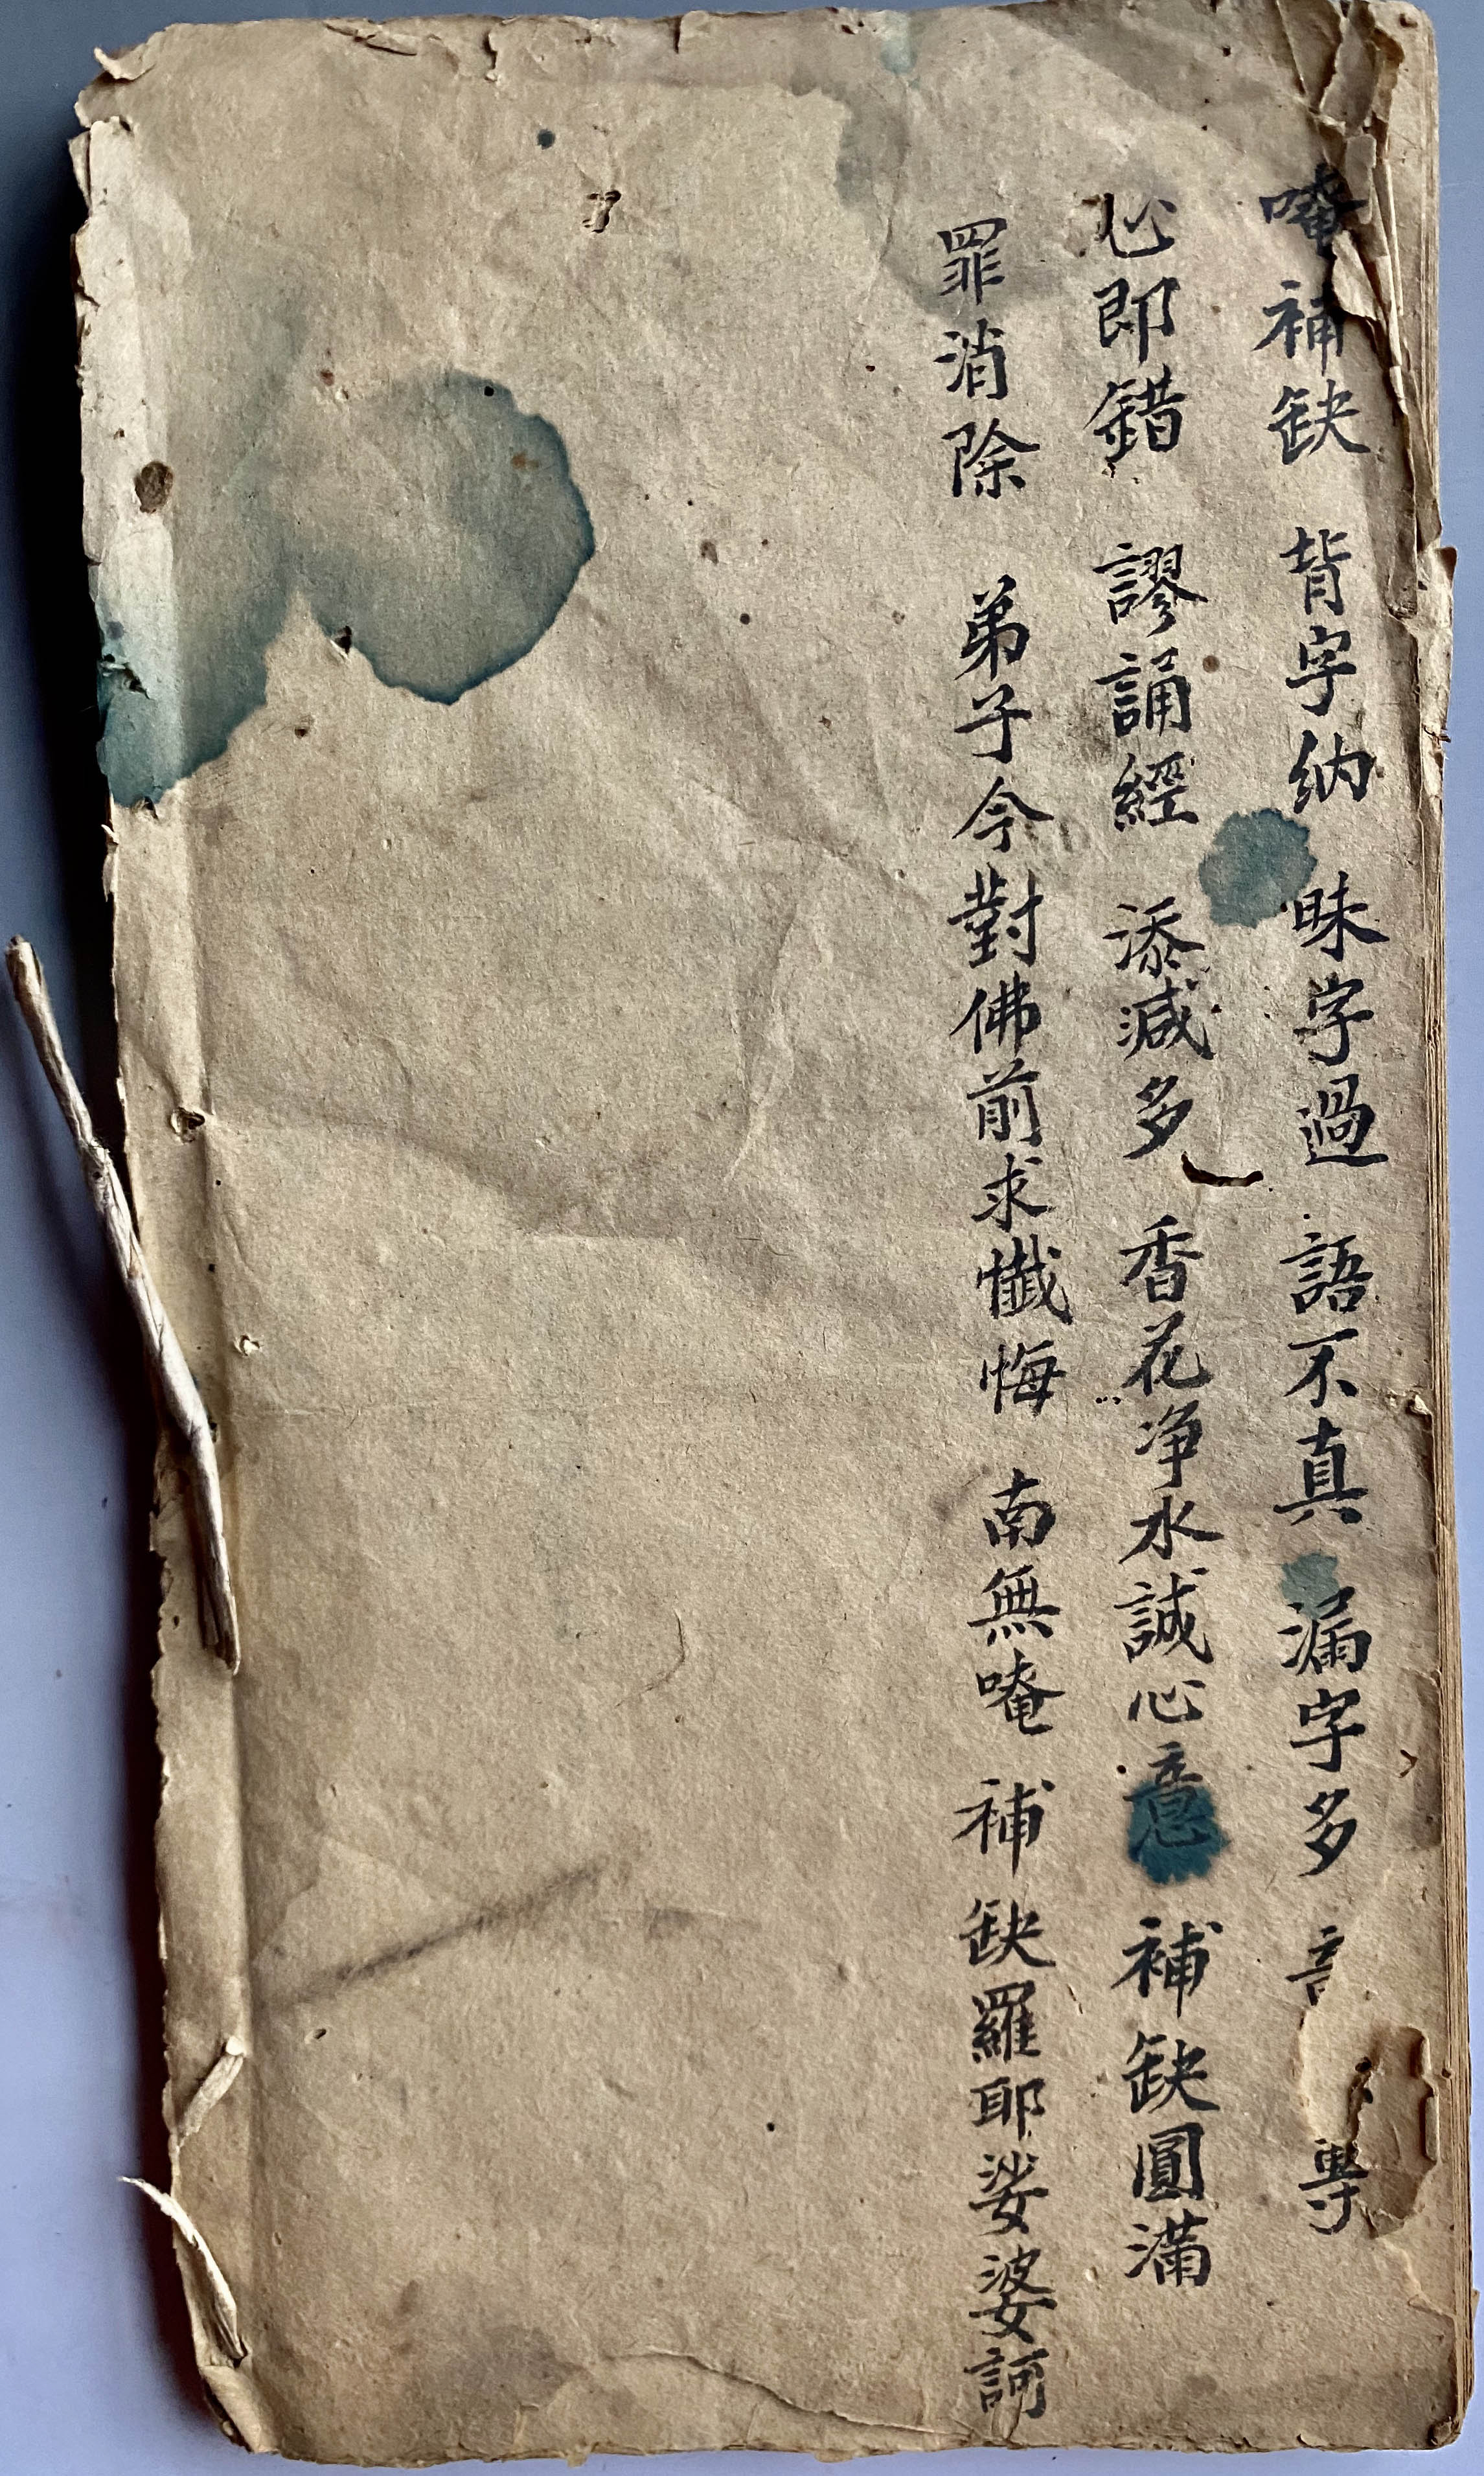 唵補缺 背字纳 昧字過 語不真 漏字多 專
心即錯 謬誦經 添減多 香花净水誠心意 補缺圓滿
罪消除 弟子今對佛前求懺悔 南無唵 補缺羅耶娑婆訶